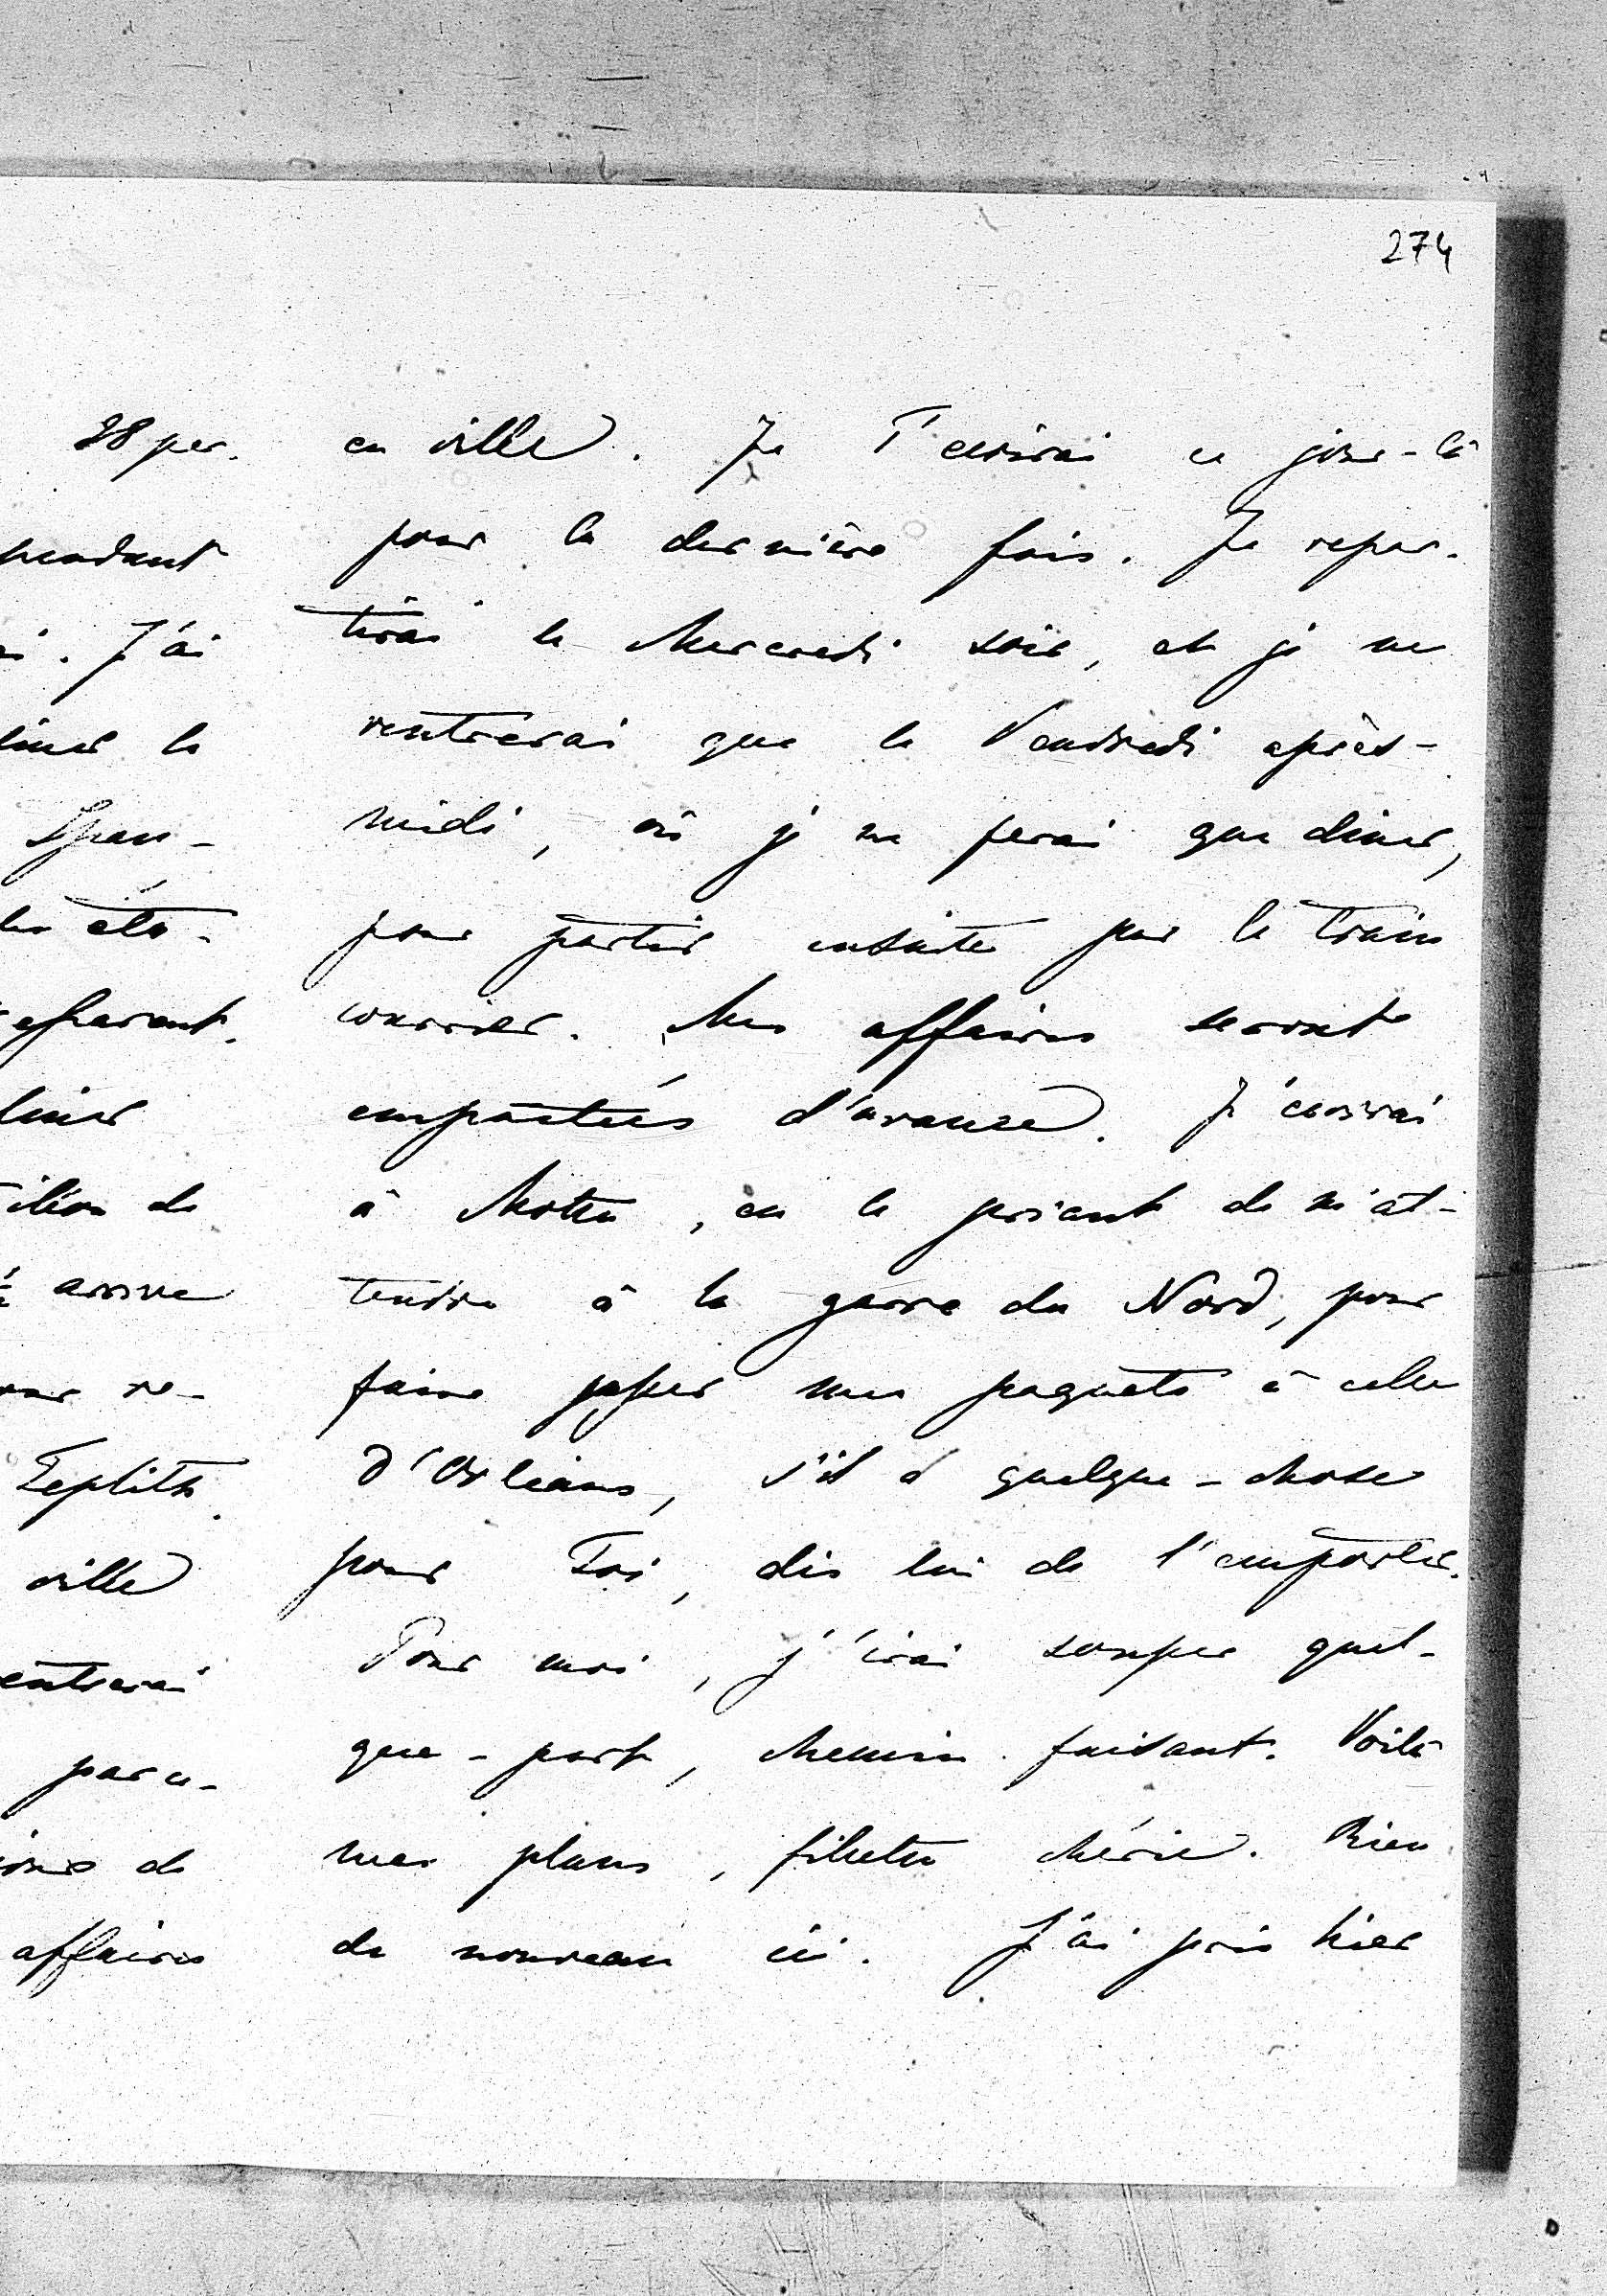 274
28 per.
pendant
. J'ai
le
Span-
éta-
ition de
arrive
re-
Teplitz.
ville
entrerai
par ce-
de
affaires
en ville. Je T'écrirai ce jour-là
pour la dernière fois. Je repar-
tirai le Mercredi soir, et je ne
rentrerai que le Vendredi après-
midi, où je ne ferai que diner,
pour partir ensuite par le train
courrier. Mes affaires seront
empactées d'avance. J'écrirai
à , en le priant de m'at-
tendre à la garre du Nord, pour
faire passer mes paquets à celle
d'Orléans, s'il a quelque-chose
pour Toi, dis lui de l'emporter.
Pour moi, j'irai souper quel-
que-part, chemin faisant. Voilà
mes plans, fillette chérie. Rien
de nouveau ici. J'ai pris hier